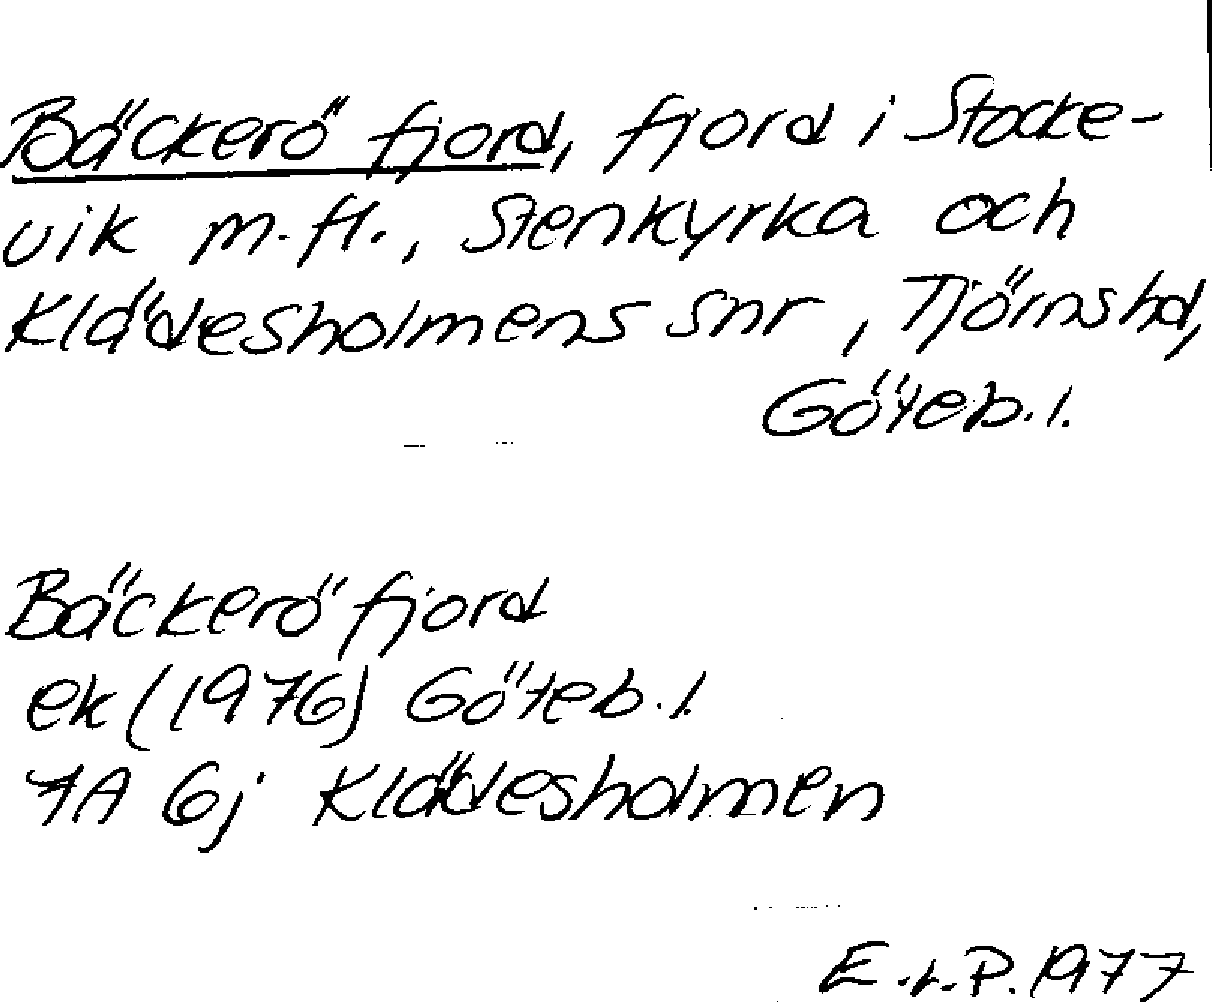 Bäckerö fjord, fjord i Stocke-
vik m.fl., Stenkyrka och
Klädesholmens snr, Tjörns hd,
Göteb.l.
Bäckerö fjord
ek (1976) Göteb.l.
7A 6j Klädesholmen
E.L.P. 1977